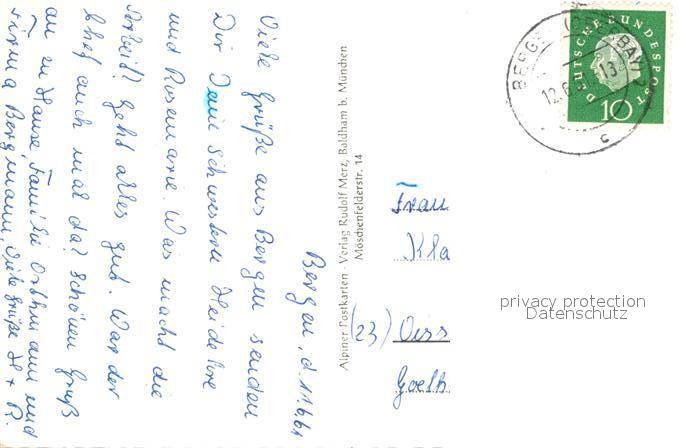 Bergen, d. 11.6.61
Viele Grüße aus Bergen senden
Dir Deine Schwestern Heidelore
und Rosemarie. Was macht die
Arbeit? Geht alles gut. War der
Chef auch mal da? Schönen Gruß
an zu Hause, Familie und
Firma Bergmann, viele Grüße H + R.
Alpiner Postkarten - Verlag Rudolf Merz, Baldham b. München
Möschenfelderstr. 14
DEUTSCHE BUNDESPOST
10
BERGEN (OBERBAY)
12.6.61 13
c
Frau
Kla
(23) Diss
Goeth
privacy protection
Datenschutz